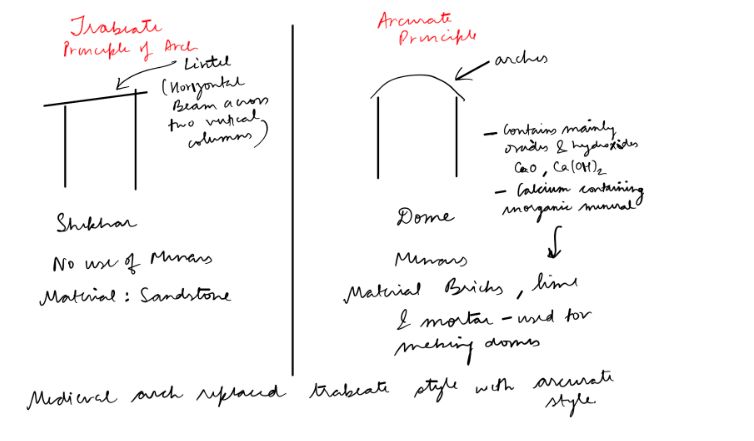 Trabeate
Principle of Arch
Lintel
(Horizontal
Beam across
two vertical
columns)
Shikhar
No use of Minars
Material : Sandstone
Arcuate
Principle
arches
- Contains mainly
oxides & hydroxides
CaO, Ca(OH)2
- Calcium containing
inorganic mineral
Dome
Minars
Material Bricks, lime
& mortar - used for
making domes
Medieval arch replaced trabeate style with arcuate
style